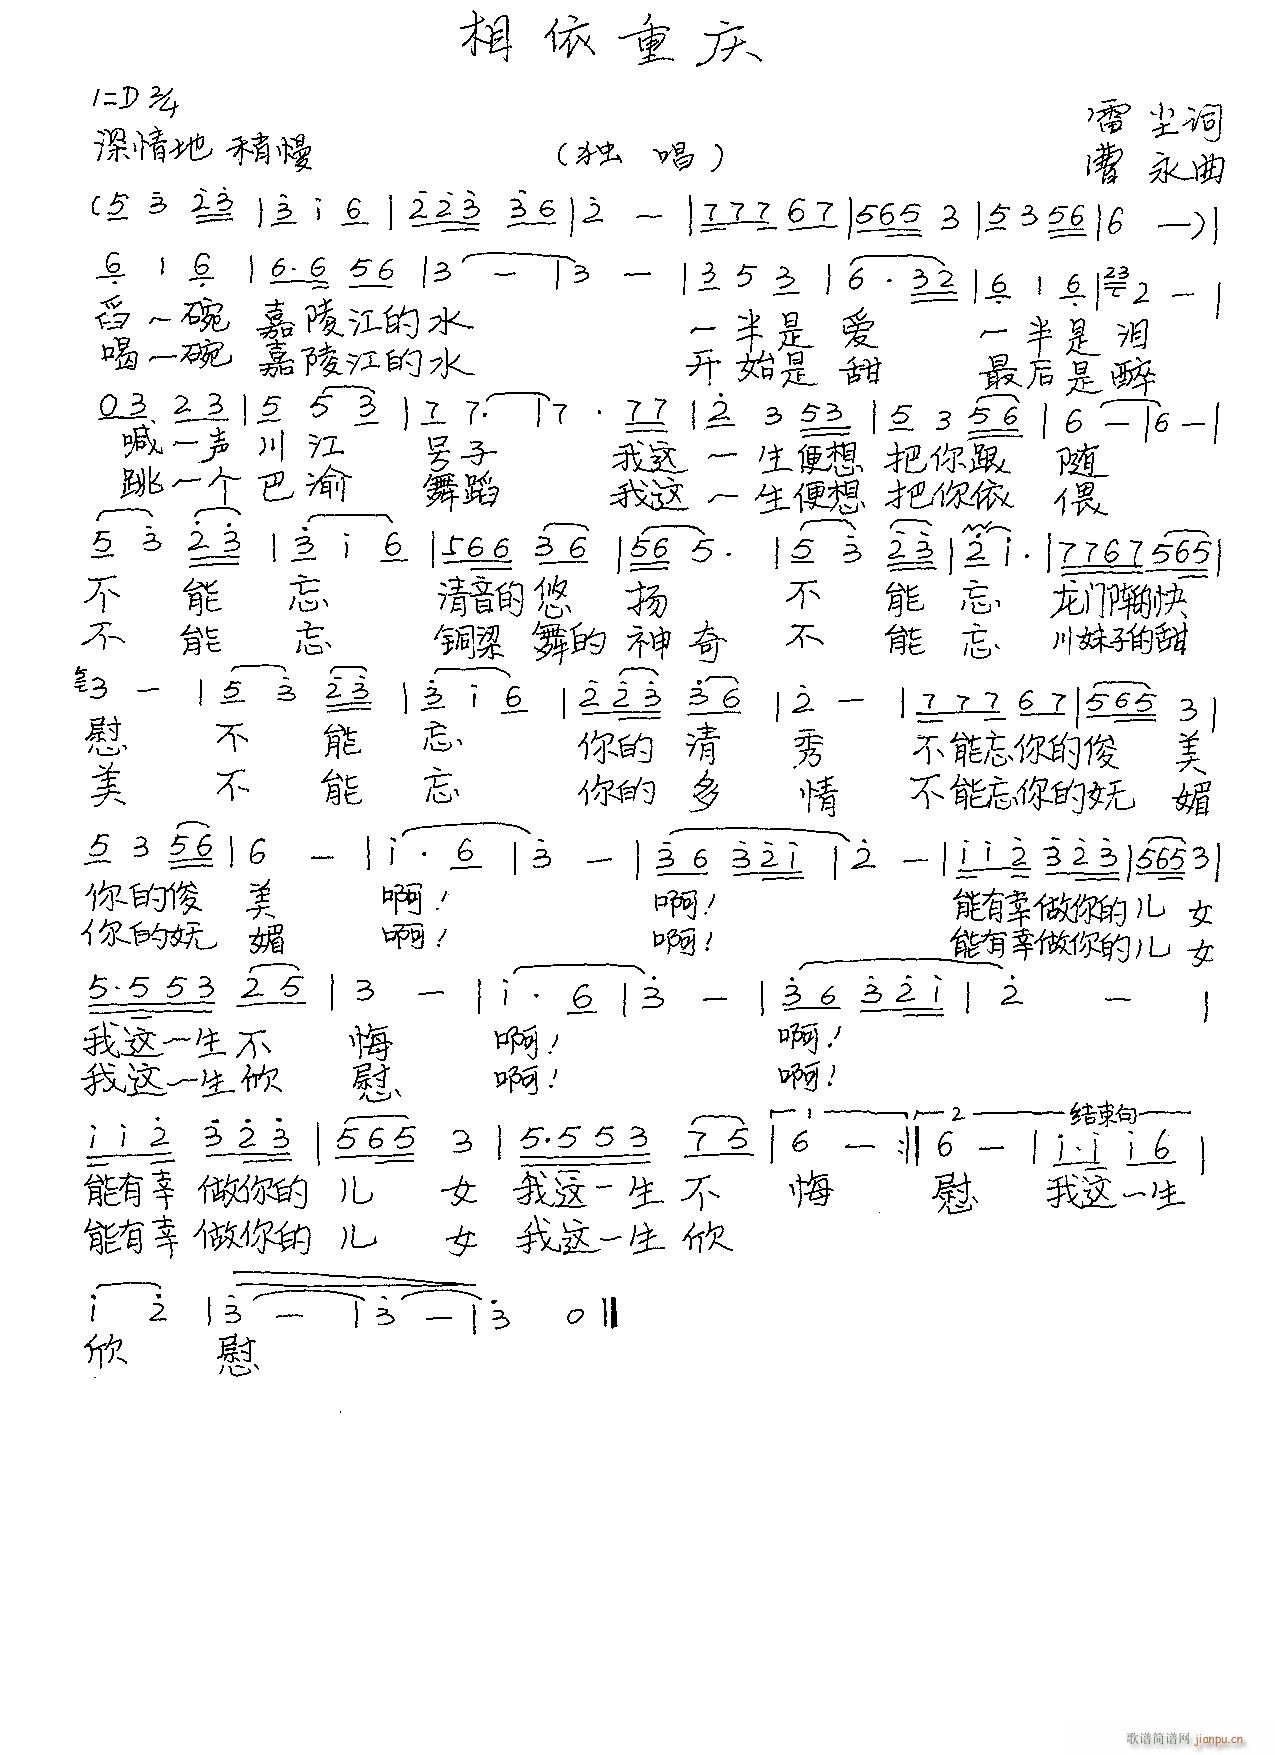 相依重庆
1=D 2/4
深情地 稍慢 （独 唱） 雷 尘词
曹 永曲
(5 3 2 3 | 3 i 6 | 2 2 3 3 6 | 2 — | 7 7 7 6 7 | 5 6 5 3 | 5 3 5 6 | 6 —) |
6 1 6 | 6·6 5 6 | 3 — | 3 — | 3 5 3 | 6· 3 2 | 6 1 6 | 23 2 — |
舀一碗 嘉陵江的水 一半是 爱 一半是 泪
喝一碗 嘉陵江的水 开始是 甜 最后是醉
0 3 2 3 | 5 5 3 | 7 7· | 7· 7 7 | 2 3 5 3 | 5 3 5 6 | 6 — | 6 — |
喊一声 川江 号子 我这一生便想 把你跟 随
跳一个 巴渝 舞蹈 我这一生便想 把你依 偎
5 3 2 3 | 3 i 6 | 5 6 6 3 6 | 5 6 5· | 5 3 2 3 | 2 i· | 7 7 6 7 5 6 5 |
不 能 忘 清音的 悠 扬 不 能 忘 龙门阵的快
不 能 忘 铜梁 舞的 神 奇 不 能 忘 川妹子的甜
3 — | 5 3 2 3 | 3 i 6 | 2 2 3 3 6 | 2 — | 7 7 7 6 7 | 5 6 5 3 |
慰 不 能 忘 你的 清 秀 不能忘你的俊 美
美 不 能 忘 你的 多 情 不能忘你的妩 媚
5 3 5 6 | 6 — | i· 6 | 3 — | 3 6 3 2 i | 2 — | i i 2 3 2 3 | 5 6 5 3 |
你的俊 美 啊！ 啊！ 能有幸做你的儿 女
你的妩 媚 啊！ 啊！ 能有幸做你的儿 女
5·5 5 3 2 5 | 3 — | i· 6 | 3 — | 3 6 3 2 i | 2 — |
我这一生不 悔 啊！ 啊！
我这一生欣 慰 啊！ 啊！
i i 2 3 2 3 | 5 6 5 3 | 5·5 5 3 7 5 | 1 6 — :‖ 2 6 — | 结束句 i·i i 6 |
能有幸 做你的 儿 女 我这一生 不 悔 慰 我这一生
能有幸 做你的 儿 女 我这一生 欣
i 2 | 3 — | 3 — | 3 0 ‖
欣 慰
歌谱简谱网 jianpu.cn